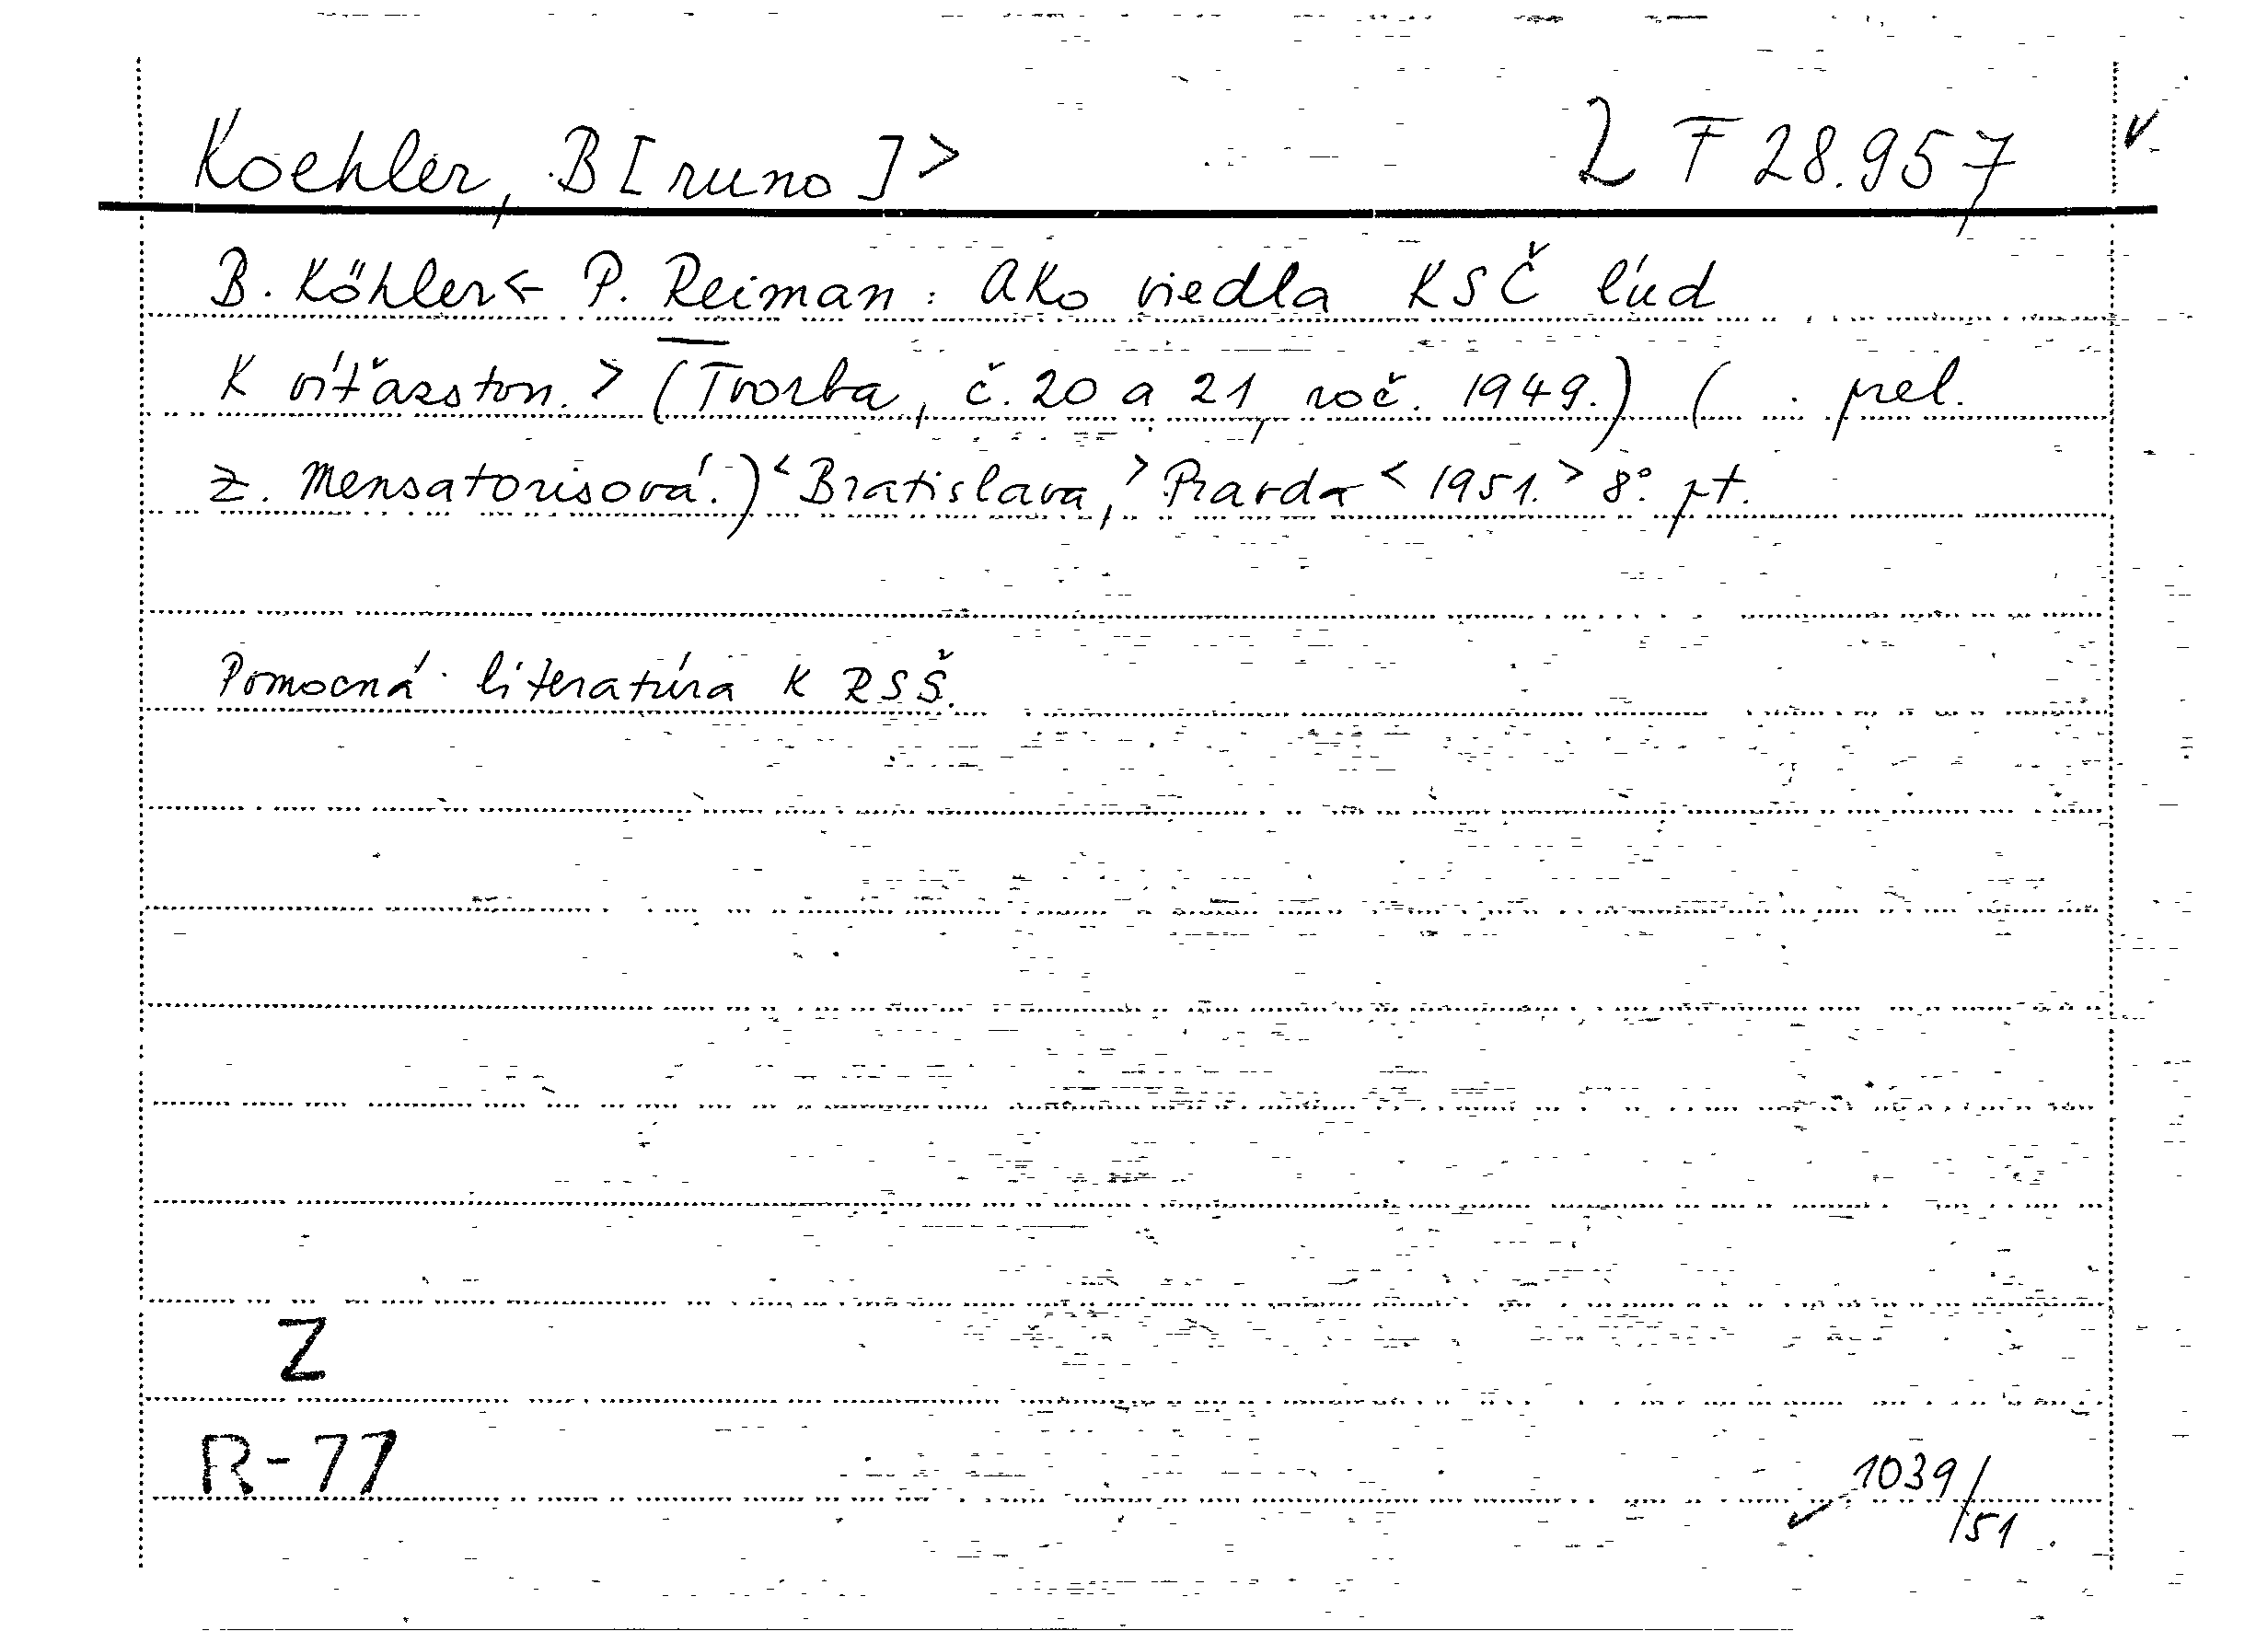 Koehler, B[runo]> 2 F 28.957
B. Köhler< P. Reiman: Ako viedla KSČ ľud
k víťazstvu.> (Tvorba, č. 20 a 21, roč. 1949.) ( . prel.
Z. Mensatorisová.) <Bratislava,> Pravda <1951.> 8°. pt.
Pomocná literatúra k RSŠ.
Z
R-77
1039/51.